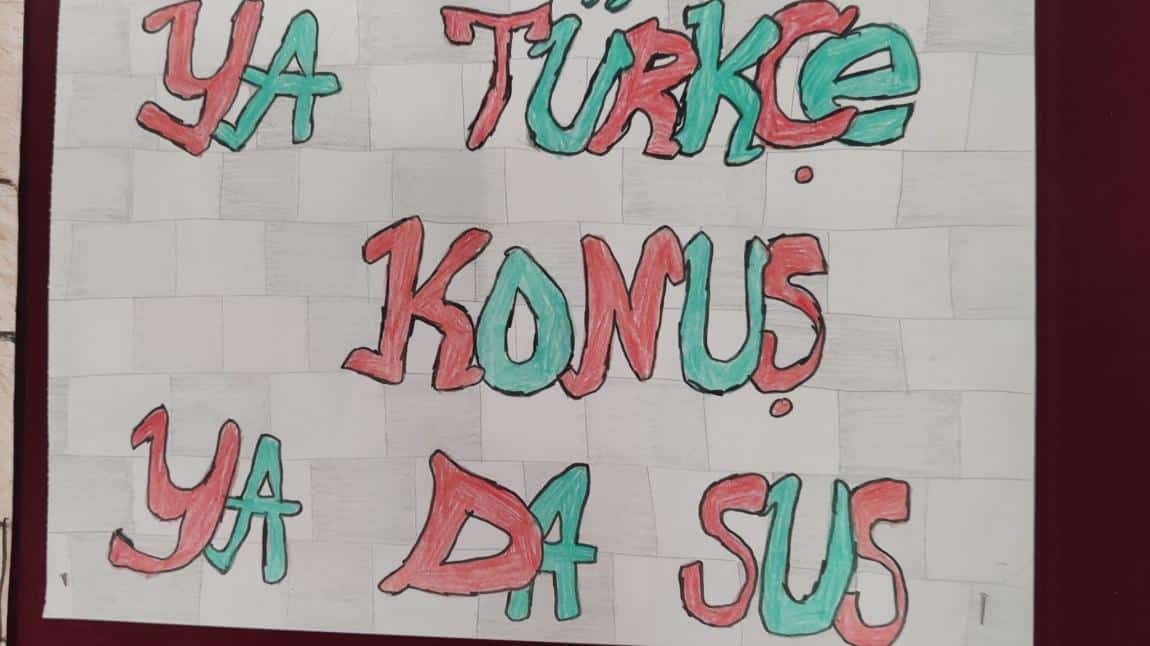 YA TÜRKÇe
KONUŞ
YA DA SUS